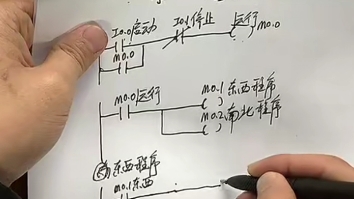 I0.0启动 I0.1停止 运行
M0.0
M0.0
M0.0运行 M0.1东西程序
M0.2南北程序
东西程序
M0.1东西